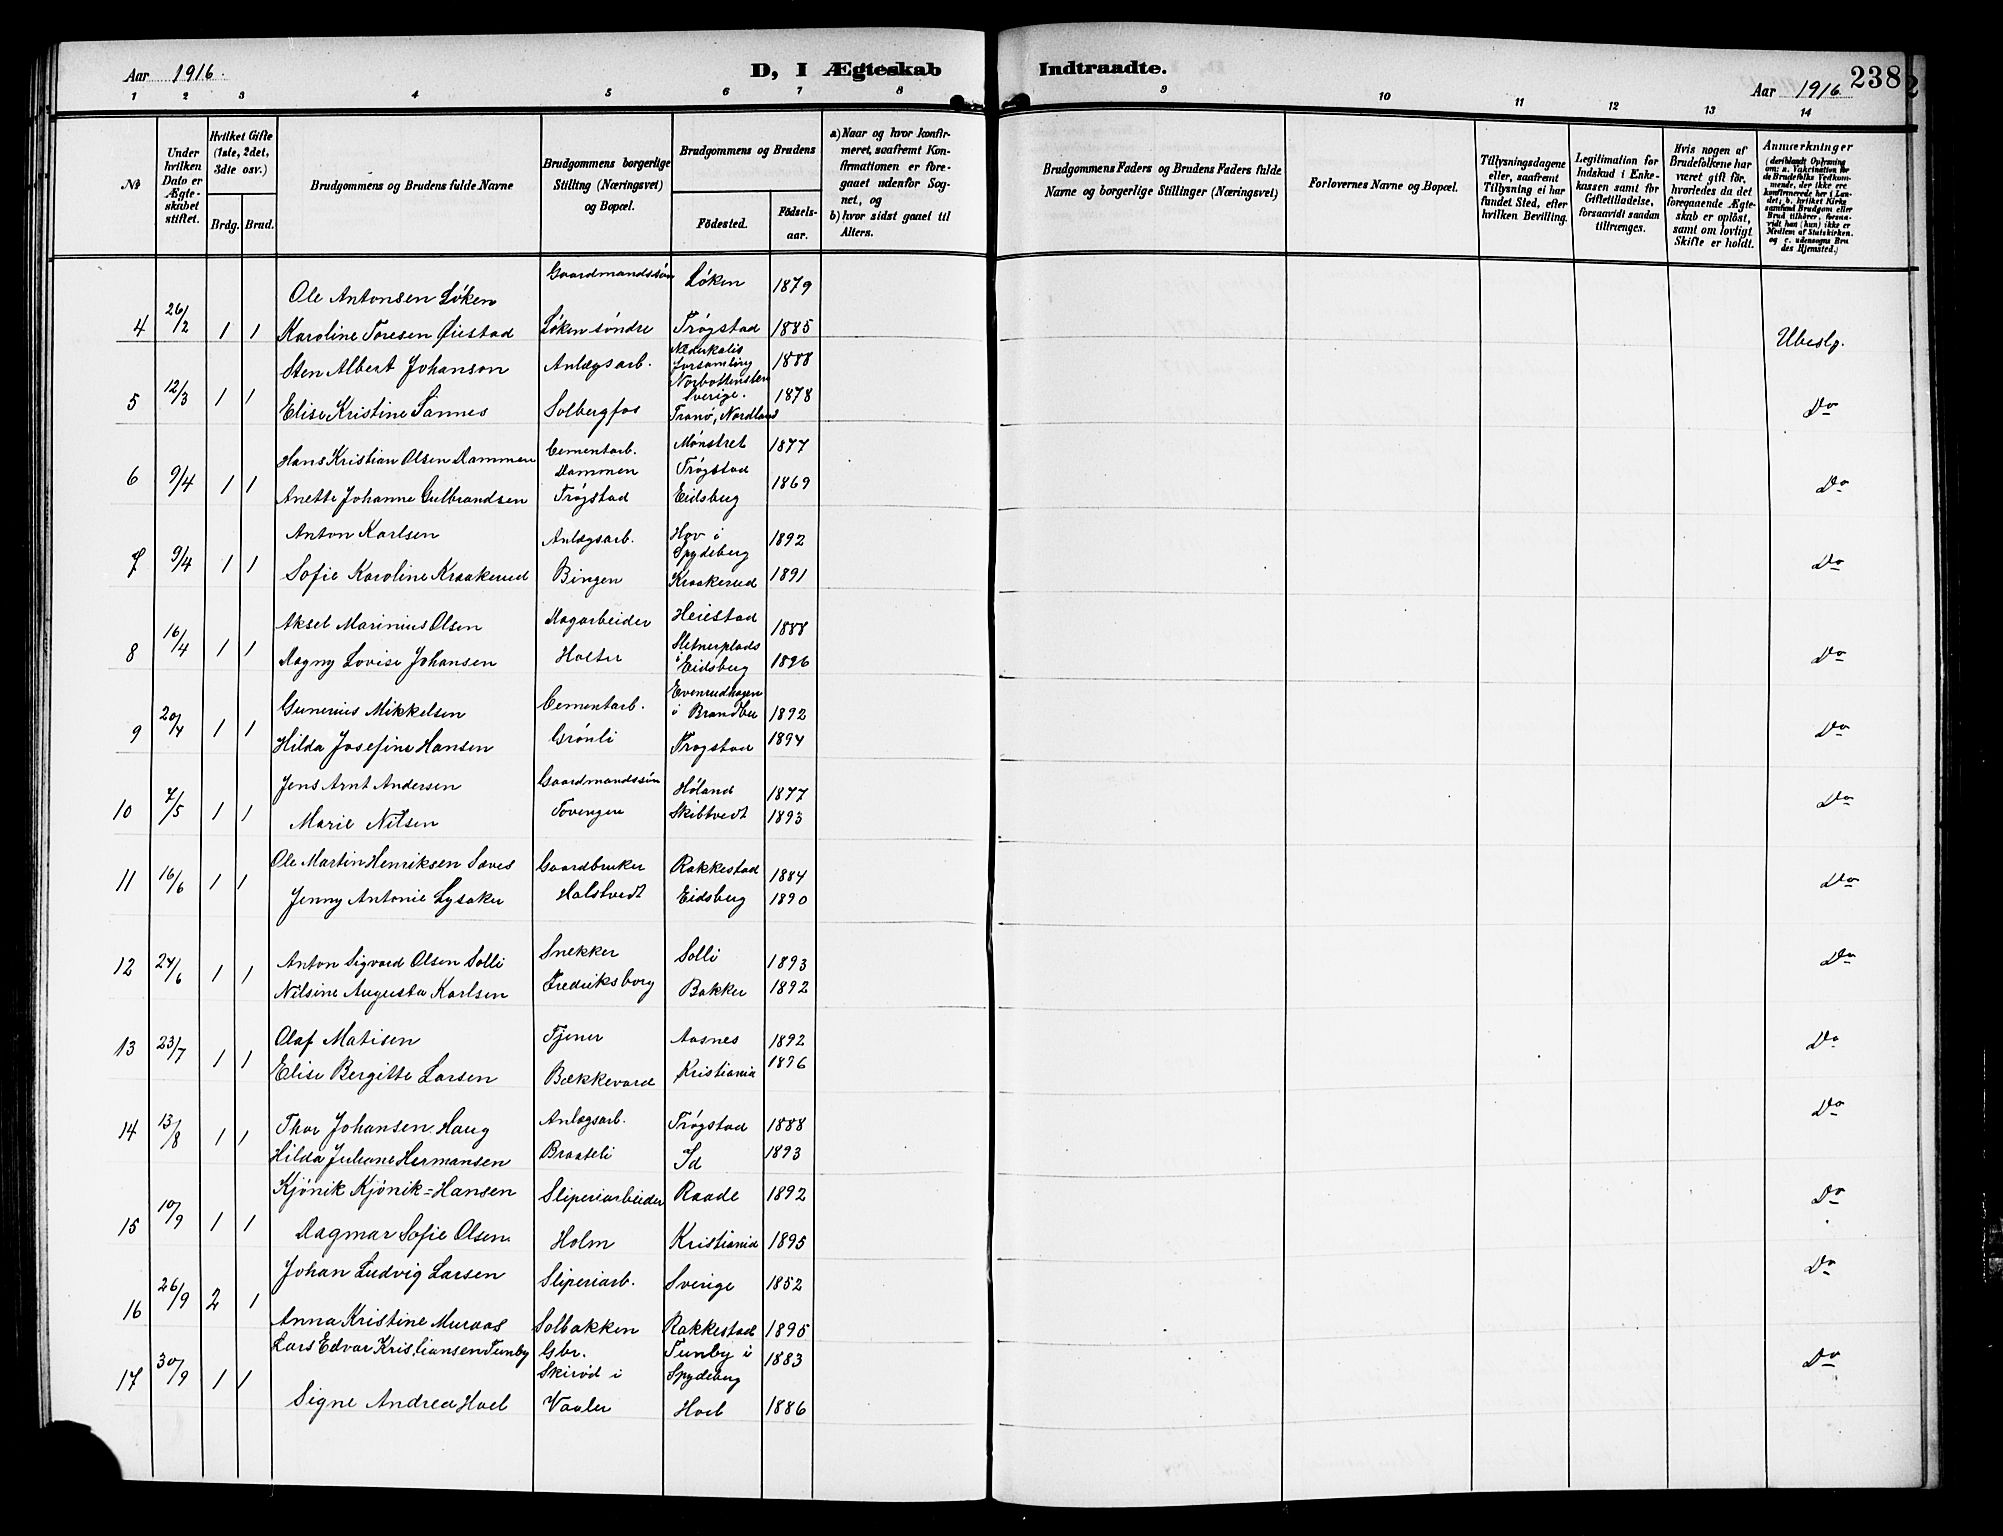 Aar 1916.
D, I Ægteskab Indtraadte.
Aar 1916
238
1 2 3 4 5 6 7 8 9 10 11 12 13 14
No
Under hvilken Dato er Ægteskabet stiftet.
Hvilket Gifte (1ste, 2det, 3dte osv.)
Brdg. Brud.
Brudgommens og Brudens fulde Navne
Brudgommens borgerlige Stilling (Næringsvei) og Bopæl.
Brudgommens og Brudens
Fødested.
Fødsels-aar.
a) Naar og hvor konfirmeret, saafremt Konfirmationen er foregaaet udenfor Sognet, og
b) hvor sidst gaaet til Alters.
Brudgommens Faders og Brudens Faders fulde
Navne og borgerlige Stillinger (Næringsvei)
Forlovernes Navne og Bopæl.
Tillysningsdagene eller, saafremt Tillysning ei har fundet Sted, efter hvilken Bevilling.
Legitimation for Indskud i Enkekassen samt for Giftetilladelse, forsaavidt saadan tiltrænges.
Hvis nogen af Brudefolkene har været gift før, hvorledes da det foregaaende Ægteskab er opløst, samt om lovligt Skifte er holdt.
Anmærkninger
(deriblandt Oplysning om: a. Vakcination for de Brudefolks Vedkommende, der ikke ere konfirmerede her i Landet; b. hvilket Kirkesamfund Brudgom eller Brud tilhører, forsaavidt han (hun) ikke er Medlem af Statskirken. og c. udensogns Brudes Hjemsted.)
Ole Antonsen Løken Gaardmandssøn Løken 1879
4 26/2 1 1 Karoline Toresen Øiestad Løken søndre Trøgstad 1885 Ubeslp.
Sten Albert Johanson Anlægsarb. Nederkalis forsamling Norbottensten Sverige. 1888
5 12/3 1 1 Elise Kristine Sannes Solbergfos Tranø, Nordland 1878 Do
Hans Kristian Olsen Dammen Cementarb. Mønstret 1877
Dammen Trøgstad
6 9/4 1 1 Anette Johanne Gulbrandsen Trøgstad Eidsberg 1869 Do
Anton Karlsen Anlægsarb. Hov i Spydeberg 1892
7 9/4 1 1 Sofie Karoline Kraakerud Bingen Kraakerud 1891 Do
Aksel Marinius Olsen Dagarbeider Heiestad 1888
8 16/4 1 1 Dagny Lovise Johansen Holter Sletnerplads i Eidsberg 1896 Do
Gunerius Mikkelsen Cementarb. Evenrudhagen i Brandbu 1892
9 20/4 1 1 Hilda Josefine Hansen Grønli Trøgstad 1894 Do
Jens Arnt Andersen Gaardmandssøn Høland 1877
10 7/5 1 1 Marie Nilsen Tovengen Skibtvedt 1893 Do
Ole Martin Henriksen Sæves Gaardbruker Rakkestad 1884
11 16/6 1 1 Jenny Antonie Lysaker Halstvedt Eidsberg 1890 Do
12 24/6 1 1 Anton Sigvard Olsen Solli Snekker Solli 1893 Do
Nilsine Augusta Karlsen Fredriksborg Bakker 1892
13 23/7 1 1 Olaf Matisen Tjener Aasnes 1892 Do
Elise Bergitte Larsen Bækkevard Kristiania 1896
14 13/8 1 1 Thor Johansen Haug Anlægsarb. Trøgstad 1888 Do
Hilda Juliane Hermansen Braateli Id 1893
Kjønik Kjønik=Hansen Sliperiarbeider Raade 1892
15 10/9 1 1 Dagmar Sofie Olsen Holm Kristiania 1895 Do
Johan Ludvig Larsen Sliperiarb. Sverige 1852
16 26/9 2 1 Anna Kristine Muraas Solbakken Rakkestad 1895 Do
Lars Edvar Kristiansen Tunby Gbr. Tunby i 1883
Skirød i Spydeberg
17 30/9 1 1 Signe Andrea Hoel Vaaler Hoel 1886 Do